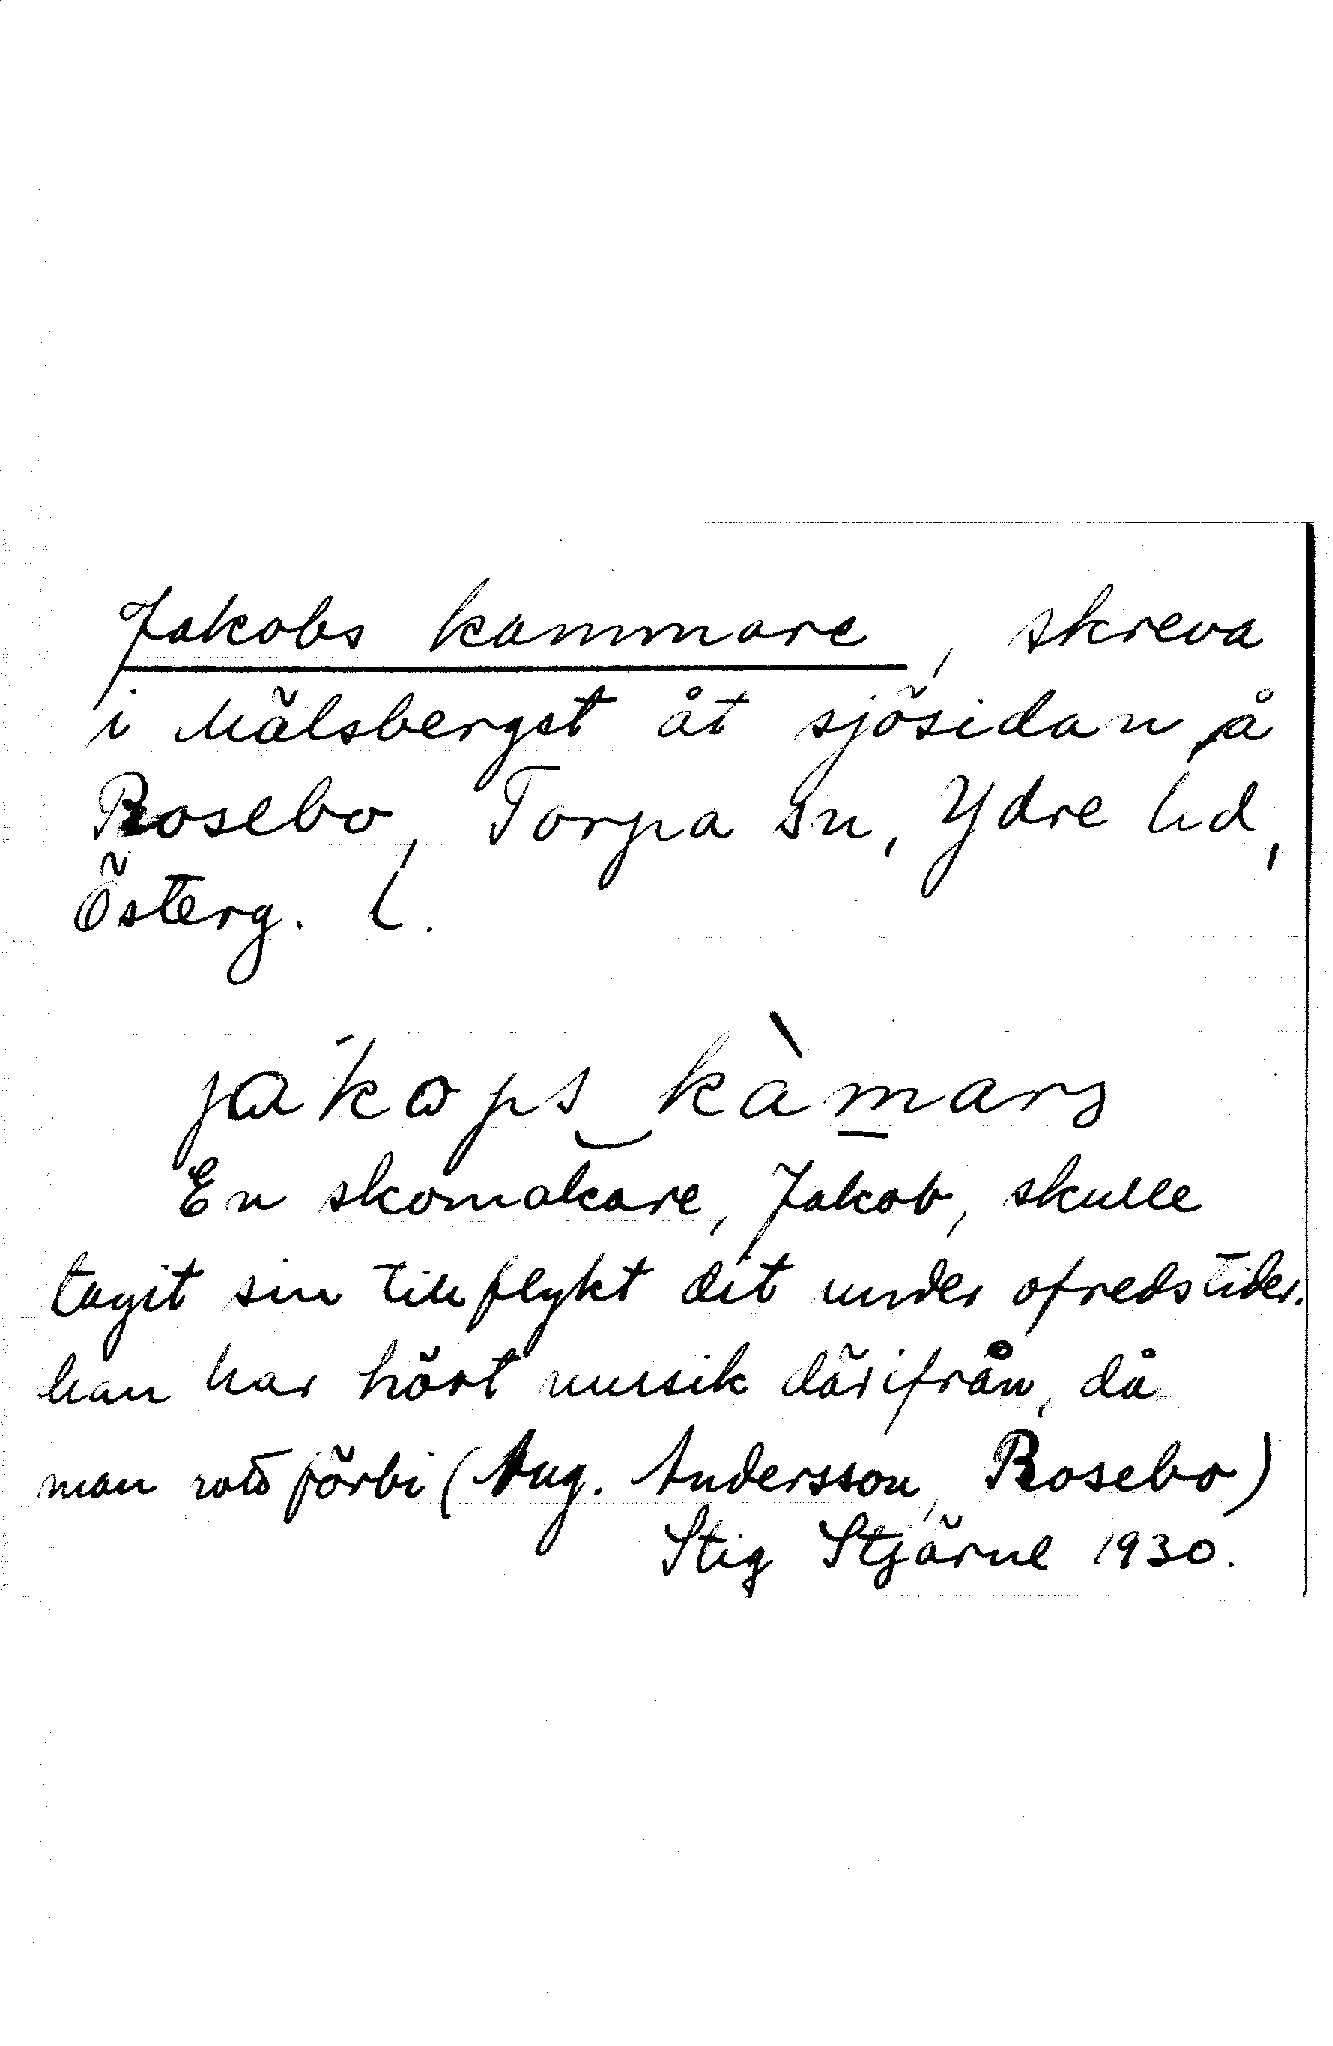 Jakobs kammare, skreva
i Mälsberget åt sjösidan å
Rosebo, Torpa sn, Ydre hd,
Österg. l.
ja'kops kàmarə
En skomakare, Jakob, skulle
tagit sin tillflykt dit under ofredstider.
han har hört musik därifrån, då
man rott förbi (Aug. Andersson, Rosebo)
Stig Stjärne 1930.